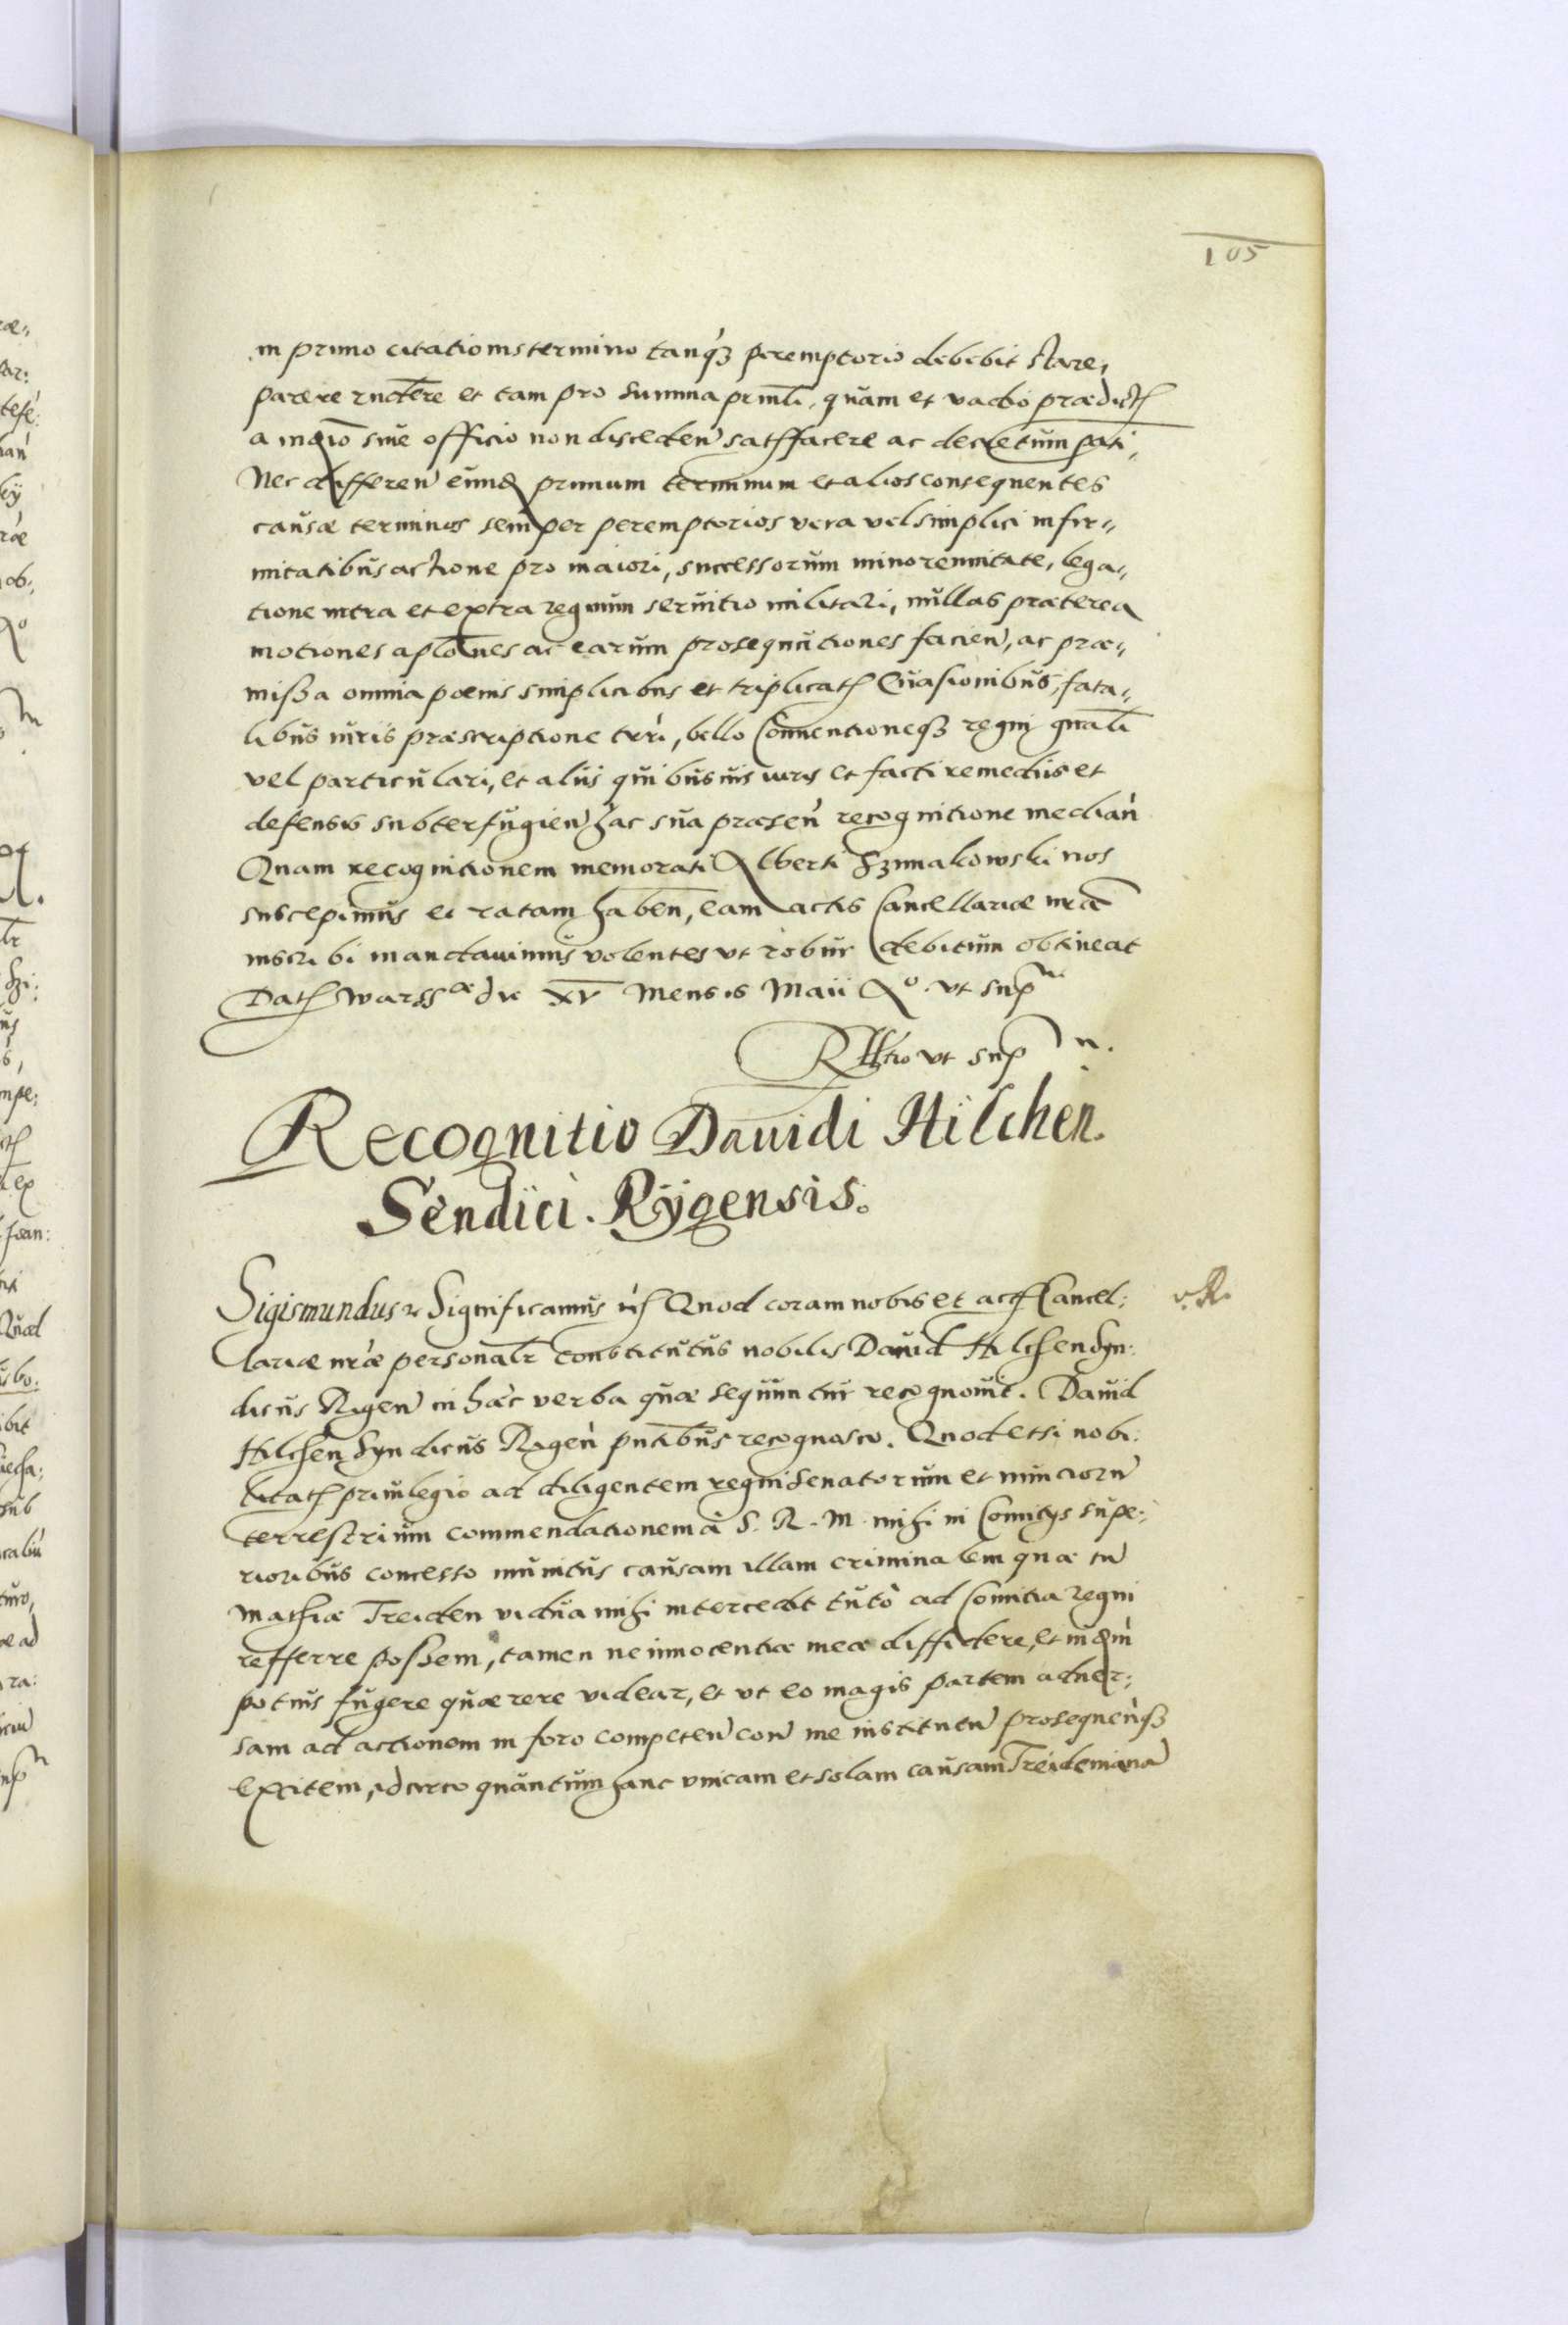 105
in primo citationis termino tanq₃ peremptorio debebit stare,
parere rndere et tam pro summa prnli, quam et vadio prædict
a indio siue officio non disceden satffacere ac decretum pati,
Nec differen eund primum terminum et alios consequentes
causæ terminos semper peremptorios vera vel simplici infir„
mitatibus actione pro maiori, successorum minorennitate, lega„
tione intra et extra regnum seruitio militari, nullas præterea
motiones aplones ac earum prosequutiones facien, ac præ„
missa omnia pœnis simplicibus et triplicat Euasionibus, fata„
libus iuris præscriptione terri, bello Conuentioneq₃ regni gnali
vel particulari, et aliis quibusuis iuris et facti remediis et
defensis subterfugien hac sua præsen recognitione median
Quam recognitionem memorati Alberti Szimakowski nos
suscepimus et ratam haben, eam actis Cancellariæ nræ
inscribi mandauimus volentes vt robur debitum obtineat
Dat Warssæ die XV Mensis Maii Ao vt sup
Rltio vt sup
Recognitio Dauidi Hilchen.
Sendici. Rÿgensis.
Sigismundus Significamus Quod coram nobis et act Cancel:
lariæ nræ personalr constitutus nobilis Dauid Hilchen Syn:
dicus Rigen in hæc verba quæ sequuntur recognouit. Dauid
Hilchen Syndicus Rigen pntibus recognosco. Quod etsi nobi:
litat priuilegio ad diligentem regni Senatorum et nunciorn
terrestrium commendationem à S. R. M. mihi in Comitys supe:
rioribus concesso munitus causam illam criminalem quæ cu
Mathiæ Treiden vidua mihi intercedit tutò ad Comitia regni
refferre possem, tamen ne innocentiæ meæ diffidere, et indm
potius fugere quærere videar, et vt eo magis partem aduer:
sam ad actionem in foro competen con me institutn prosequenq₃
excitem, idcirco quantum hanc vnicam et solam causam Treidenianã
v. R.